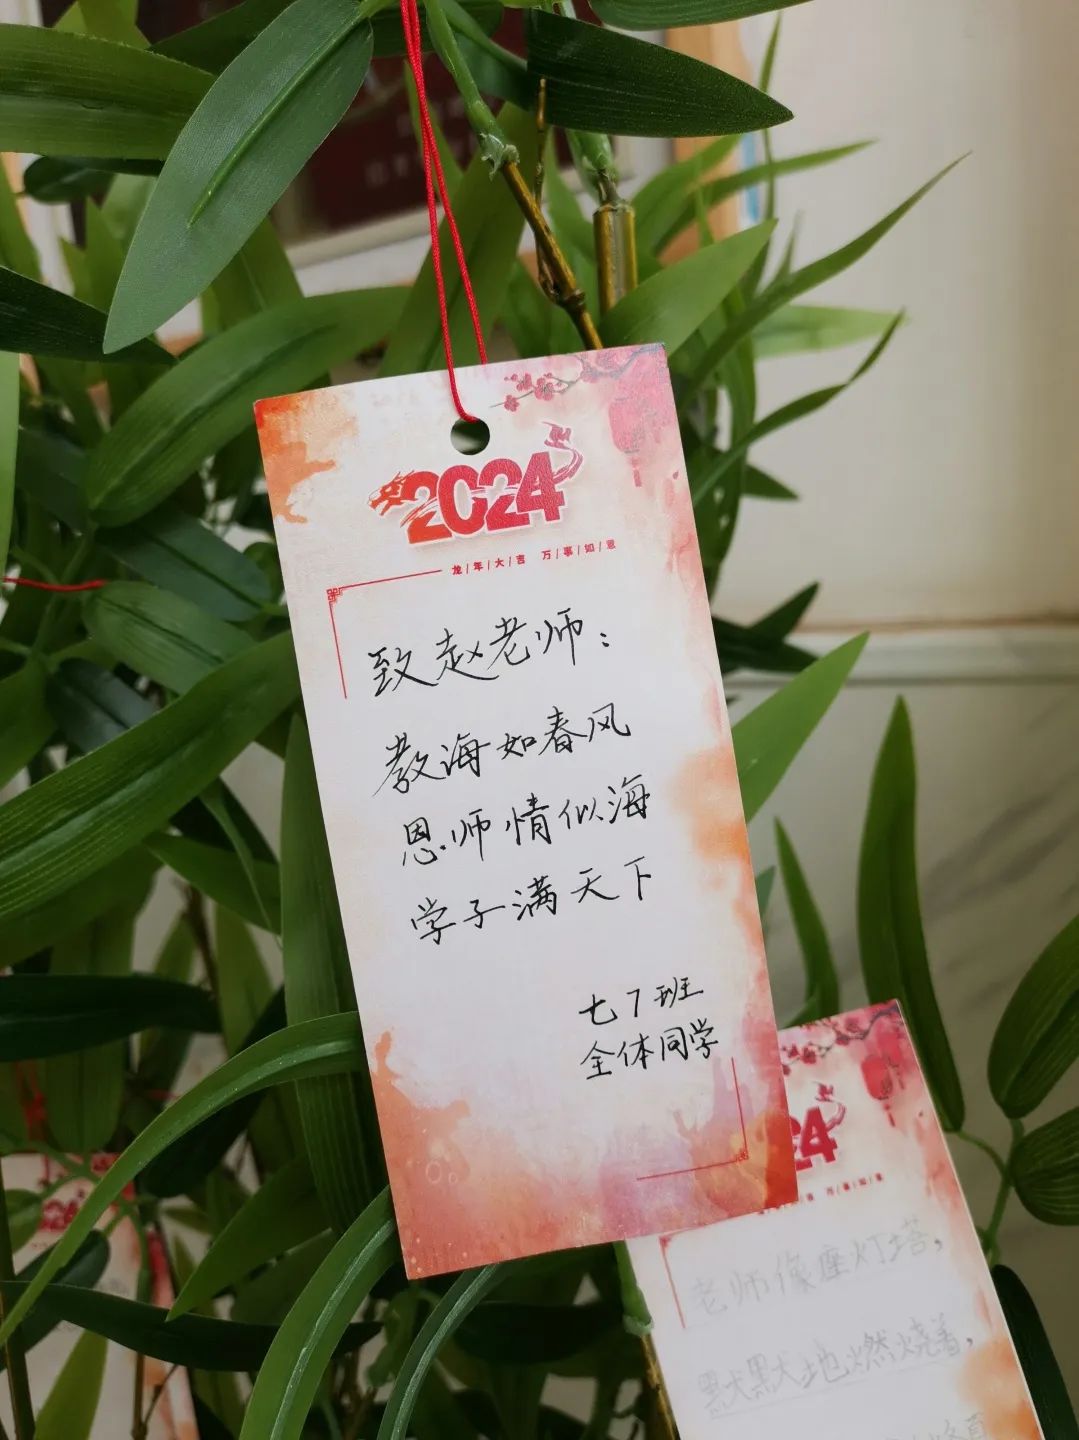 2024
龙/年/大/吉 万/事/如/意
致赵老师：
教海如春风
恩师情似海
学子满天下
七7班
全体同学
24
万/事/如/意
老师像座灯塔，
默默地燃烧着，